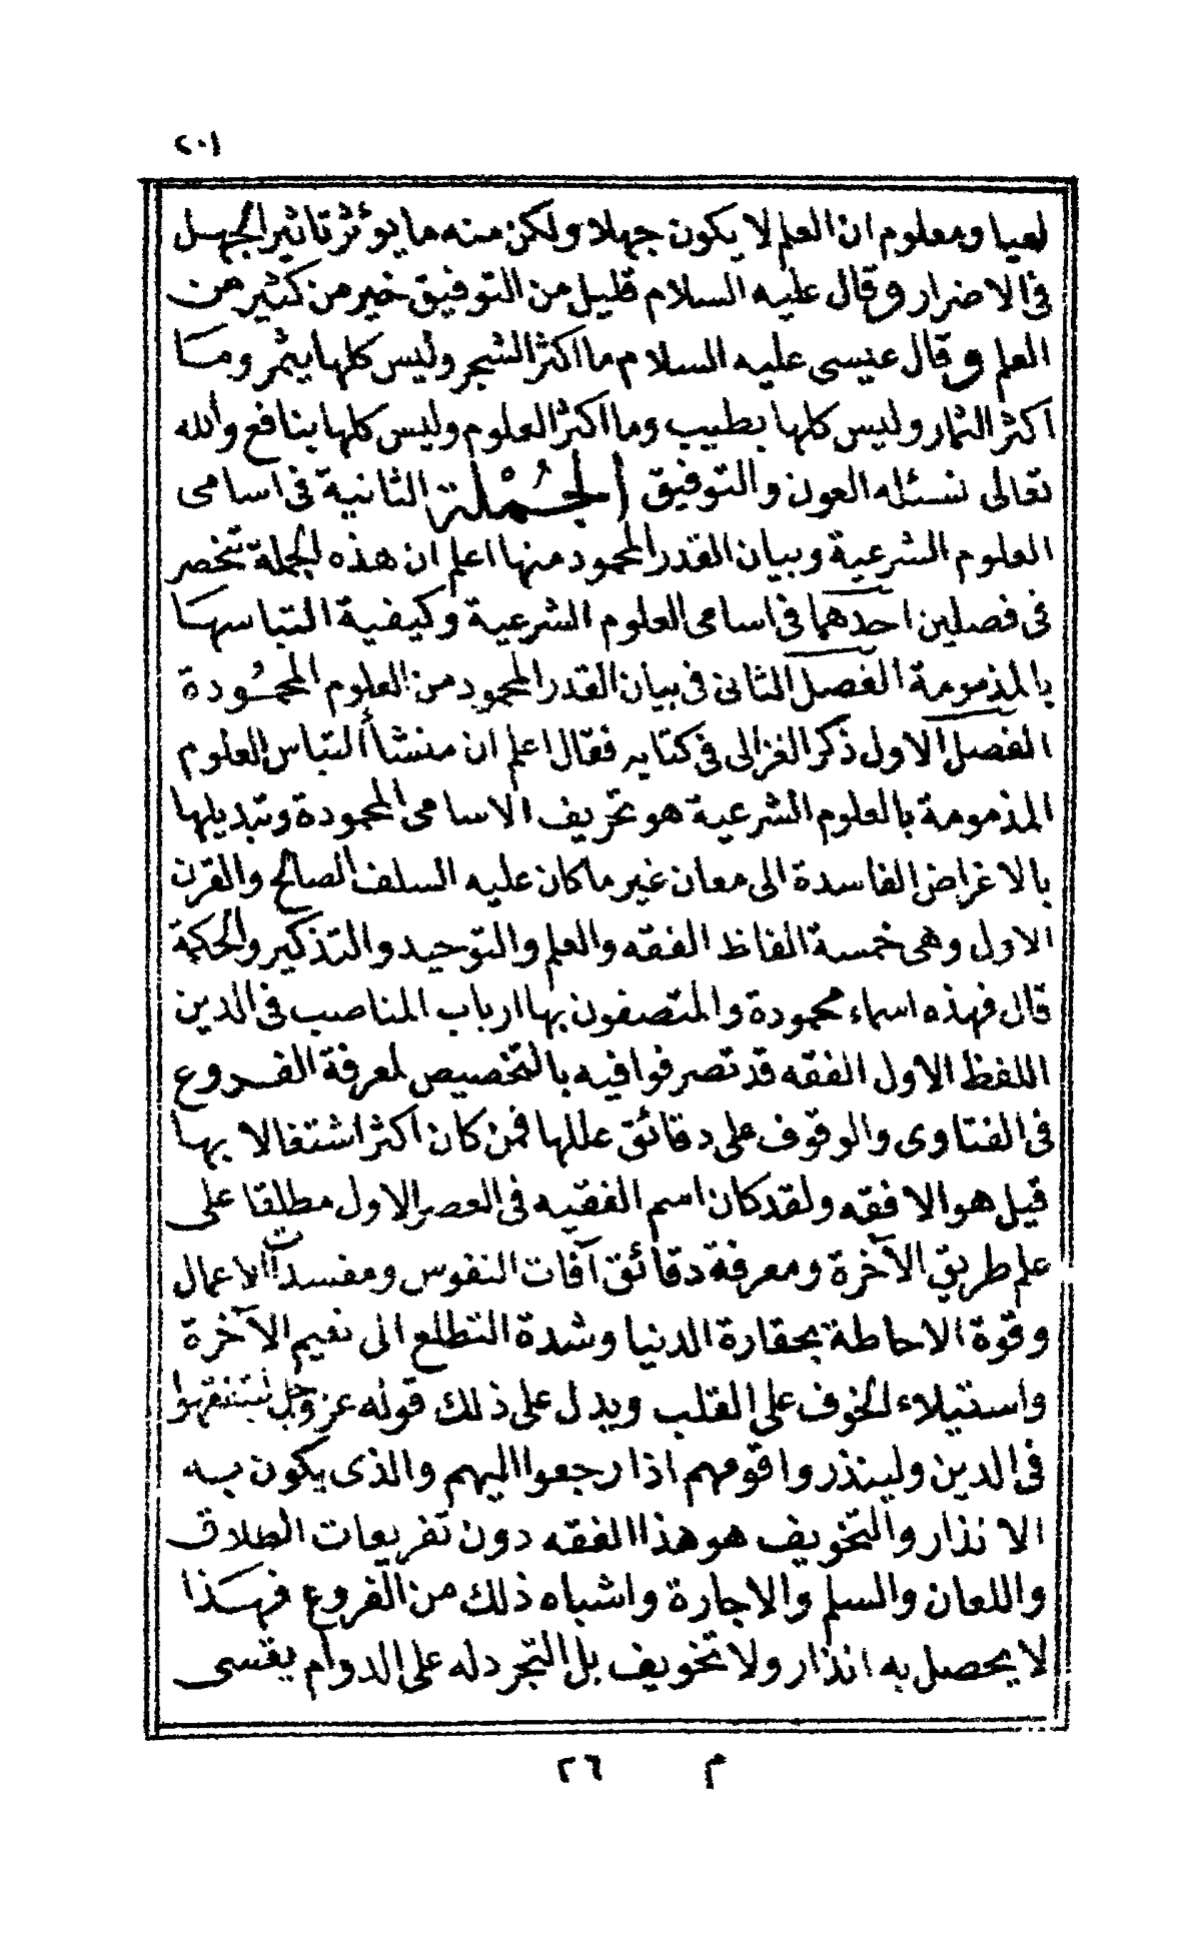 ٢٠١
لعيا ومعلوم ان العلم لا يكون جهلا ولكن منه ما يؤثر تاثير الجهل
فى الاضرار وقال عليه السلام قليل من التوفيق خير من كثير من
العلم وقال عيسى عليه السلام ما اكثر الشجر وليس كلها يثمر وما
اكثر الثمار وليس كلها بطيب وما اكثر العلوم وليس كلها بنافع والله
تعالى نسئله العون والتوفيق الجُمْلة الثانية فى اسامى
العلوم الشرعية وبيان القدر المحمود منها اعلم ان هذه الجملة تنحصر
فى فصلين احدهما فى اسامى العلوم الشرعية وكيفية التباسها
بالمذمومة الفصل الثانى فى بيان القدر المحمود من العلوم المحمُودة
الفصل الاول ذكر الغزالى فى كتابه فقال اعلم ان منشأ التباس العلوم
المذمومة بالعلوم الشرعية هو تحريف الاسامى المحمودة وتبديلها
بالاغراض الفاسدة الى معان غير ما كان عليه السلف الصالح والقرن
الاول وهى خمسة الفاظ الفقه والعلم والتوحيد والتذكير والحكمة
قال فهذه اسماء محمودة والمتصفون بها ارباب المناصب فى الدين
اللفظ الاول الفقه قد تصرفوا فيه بالتخصيص لمعرفة الفروع
فى الفتاوى والوقوف على دقائق عللها فمن كان اكثر اشتغالا بها
قيل هو الافقه ولقد كان اسم الفقيه فى العصر الاول مطلقا على
علم طريق الآخرة ومعرفة دقائق آفات النفوس ومفسدات الاعمال
وقوة الاحاطة بحقارة الدنيا وشدة التطلع الى نعيم الآخرة
واستيلاء الخوف على القلب ويدل على ذلك قوله عز وجل ليتفقهوا
فى الدين ولينذروا قومهم اذا رجعوا اليهم والذى يكون به
الانذار والتخويف هو هذا الفقه دون تفريعات الطلاق
واللعان والسلم والاجارة واشباه ذلك من الفروع فهذا
لا يحصل به انذار ولا تخويف بل التجرد له على الدوام يقسى
م ٢٦